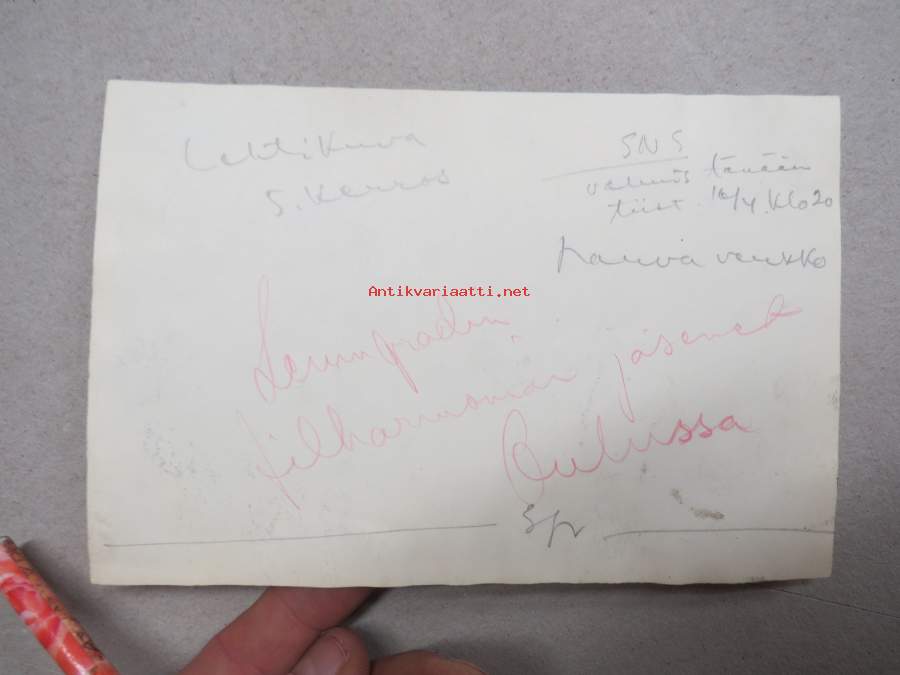 Lehtikuva
5. kerros
SNS
valmis tänään
tiist. 16/4. klo 20
Laiva verkko
Antikvariaatti.net
Leningradin
filharmonian jäsenet
Oulussa